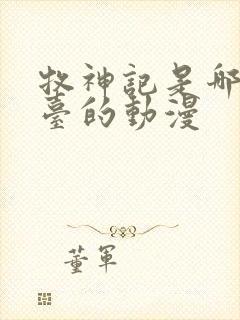 牧神記是哪
臺的動漫
董軍